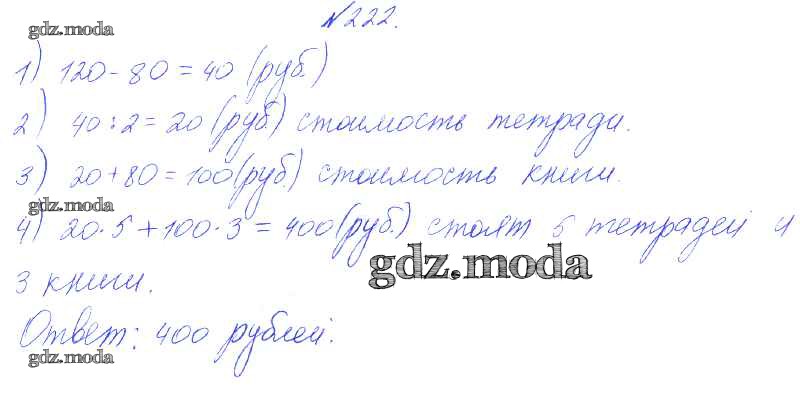 №222.
gdz.moda
1) 120 - 80 = 40 (руб.)
2) 40 : 2 = 20 (руб) стоимость тетради.
3) 20 + 80 = 100 (руб.) стоимость книги.
gdz.moda
4) 20·5 + 100·3 = 400 (руб.) стоят 5 тетрадей и
gdz.moda
3 книги.
Ответ: 400 рублей.
gdz.moda